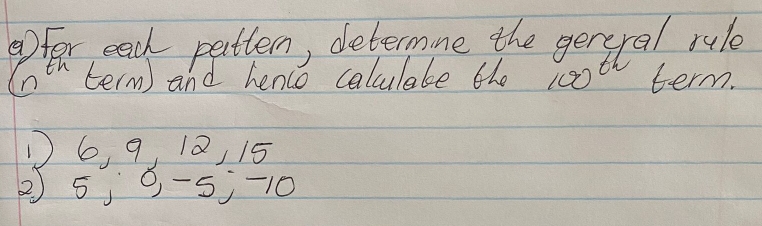 a) For each pattern, determine the general rule
(nth term) and hence calculate the 100th term.
1) 6, 9, 12, 15
2) 5; 0, -5; -10